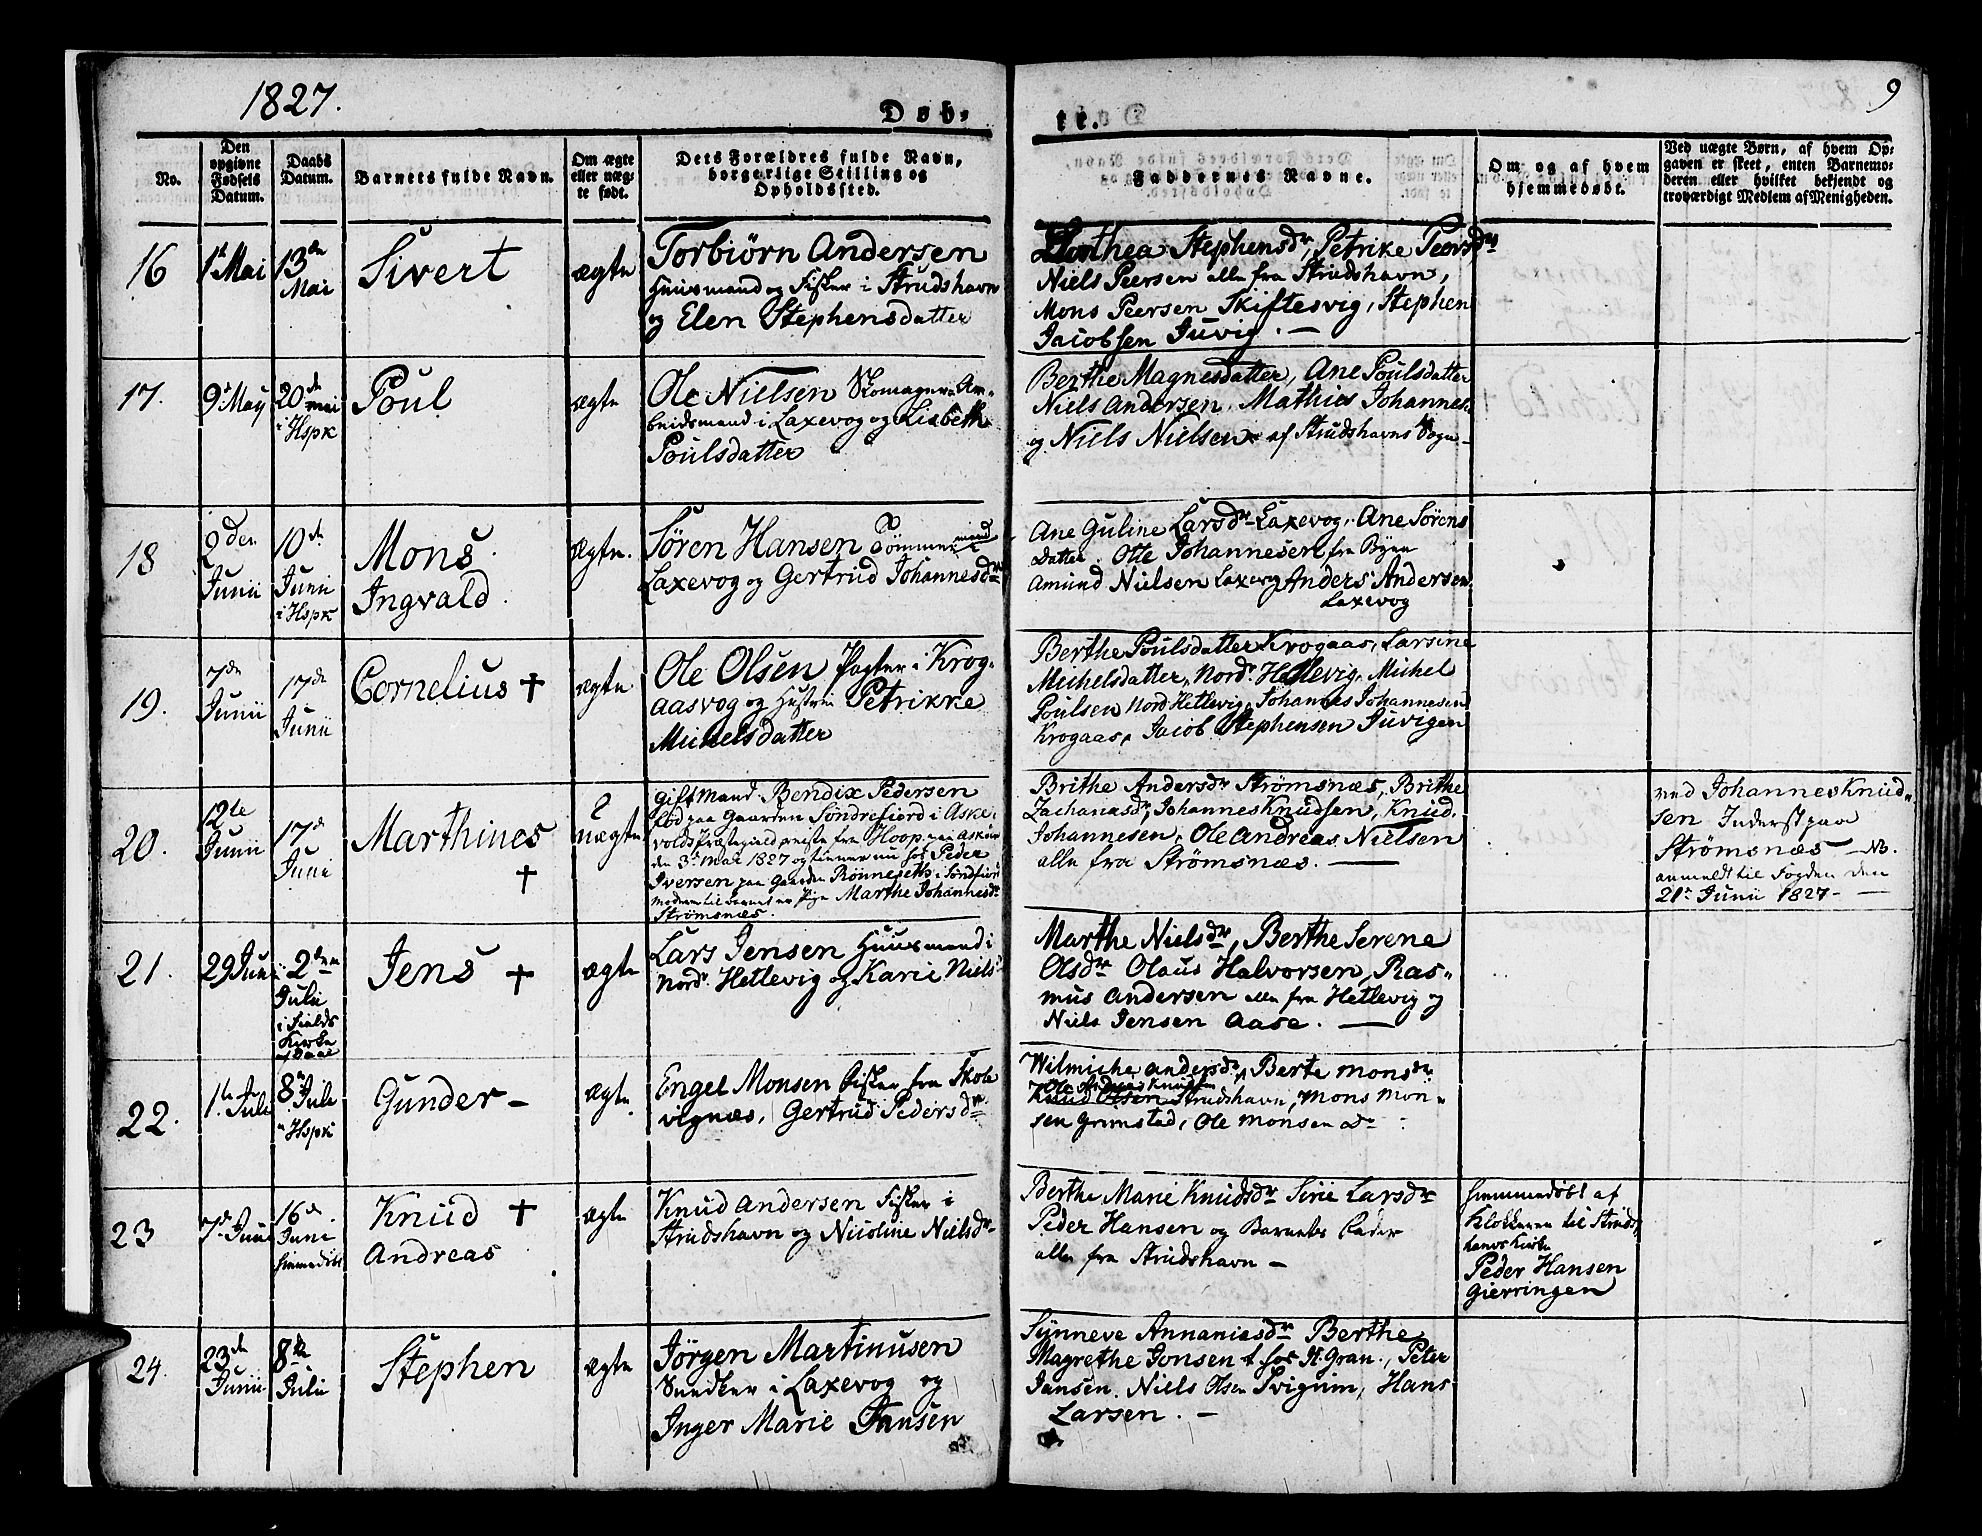 1827.
Døb-
te.
9
No.
Den opgivne Fødsels Datum.
Daabs Datum.
Barnets fulde Navn.
Om ægte eller uægte født.
Dets Forældres fulde Navn, borgerlige Stilling og Opholdssted.
Faddernes Navne.
Om og af hvem hjemmedøbt.
Ved uægte Børn, af hvem Opgaven er skeet, enten Barnemoderen eller hvilket bekjendt og troværdigt Medlem af Menigheden.
16
1st Mai
13de
Mai
Sivert
ægte
Torbiörn Andersen
Huusmand og Fisker i Strudshavn
og Elen Stephensdatter
Dorthea Stephensdr, Petrike Peersdr
Niels Peersen alle fra Strudshavn,
Mons Peersen Skiftesvig, Stephen
Jacobsen Juvig. —
17.
9d May
20de
mai
i Hspk
Poul
ægte
Ole Nielsen Skomager Ar-
beidsmand i Laxevog og Lisbeth
Poulsdatter
Berthe Magnesdatter, Ane Poulsdatter
Niels Andersen, Mathies Johannes.
og Niels Nielsen af Strudshavns Sogn -
18
2den
Junii
10de
Junii
i Hspk
Mons
Ingvald
ægte.
Sören Hansen Tömmermand
Laxevog og Gertrud Johannesdr
Ane Guline Larsdr Laxevog, Ane Sörens
Datter, Ole Johannesen fra Byen
Amund Nielsen Laxevog Anders Andersen
Laxevog
19.
7de
Junii
17de
Junii
Cornelius †
ægte
Ole Olsen Pagter i Krog-
aasvog og Hustru Petrikke
Michelsdatter
Berthe Poulsdatter Krogaas, Larsine
Michelsdatter, Nordr Hetlevig, Michel
Poulsen Nord Hetlevig, Johannes Johannesen
Krogaas, Jacob Stephensen Juvigen
20.
12te
Junii
17d
Juni
Marthines
†
uægte
Gift Mand Bendix Pedersen
paa Gaarden Söndrefiord i Aske-
volds Præstegield reiste fra Hoop paa Asköen
den 3d Mai 1827 og tiener nu hos Peder
Iversen paa Gaarden Rönneseth i Söndfiord
Moderen til Barnet er Pige Marthe Johannesdr
Strömsnæs.
Brithe Andersdr Strömsnæs, Brithe
Zachariasdr, Johannes Knudsen, Knud
Johannesen, Ole Andreas Nielsen
alle fra Strömsnæs. —
ved Johannes Knud-
sen Inderst paa
Strömsnæs — NB.
anmeldt til Fogden den
21de Junii 1827 —
21.
29 Juni
2den
Julii
i Fields
Kirke
Jens †
ægte
Lars Jensen Huusmand i
Nordr Hetlevig og Karie Niels
Marthe Nielsdr, Berthe Serene
Olsdr Olaus Halvorsen, Ras-
mus Andersen alle fra Hetlevig og
Niels Jensen Aase. —
22.
1te Jule
8 Jule
Hspk
Gunder —
ægte
Engel Monsen Fisker fra Skole
vignæs, Gertrud Pedersdr
Wilmiche Andersdr, Berte Monsdr
Ole Andreas Knudsen
Knud Olsen Strudshavn, Mons Mon-
sen Grimstad, Ole Monsen do
23
7de Juni
16de
Juni
hiemmedöbt
Knud †
Andreas
ægte
Knud Andersen Fisker i
Strudshavn og Nicoline Nielsdr
Berthe Marie Knudsdr Sirie Larsdr
Peder Hansen og Barnets Fader
alle fra Strudshavn —
hiemmedöbt af
Klokkeren til Struds-
havns Kirke
Peder Hansen
Gierringen
24.
23de
Junii
8de
Julii
Stephen
ægte
Jörgen Martinusen
Snedker i Laxevog og
Inger Marie Jansen
Sünneve Annaniasdr Berthe
Magrethe Jonsen t. hos H. Gran., Peter
Jansen, Niels Olsen Svigrim, Hans
Larsen. —